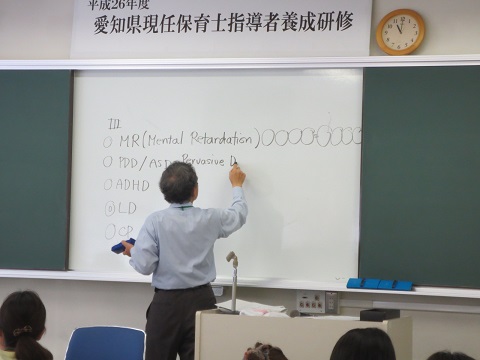 平成26年度
愛知県現任保育士指導者養成研修
III
○ MR (Mental Retardation) ○○○○○○○○
○ PDD / Asp Pervasive D
○ ADHD
◎ LD
○ CP